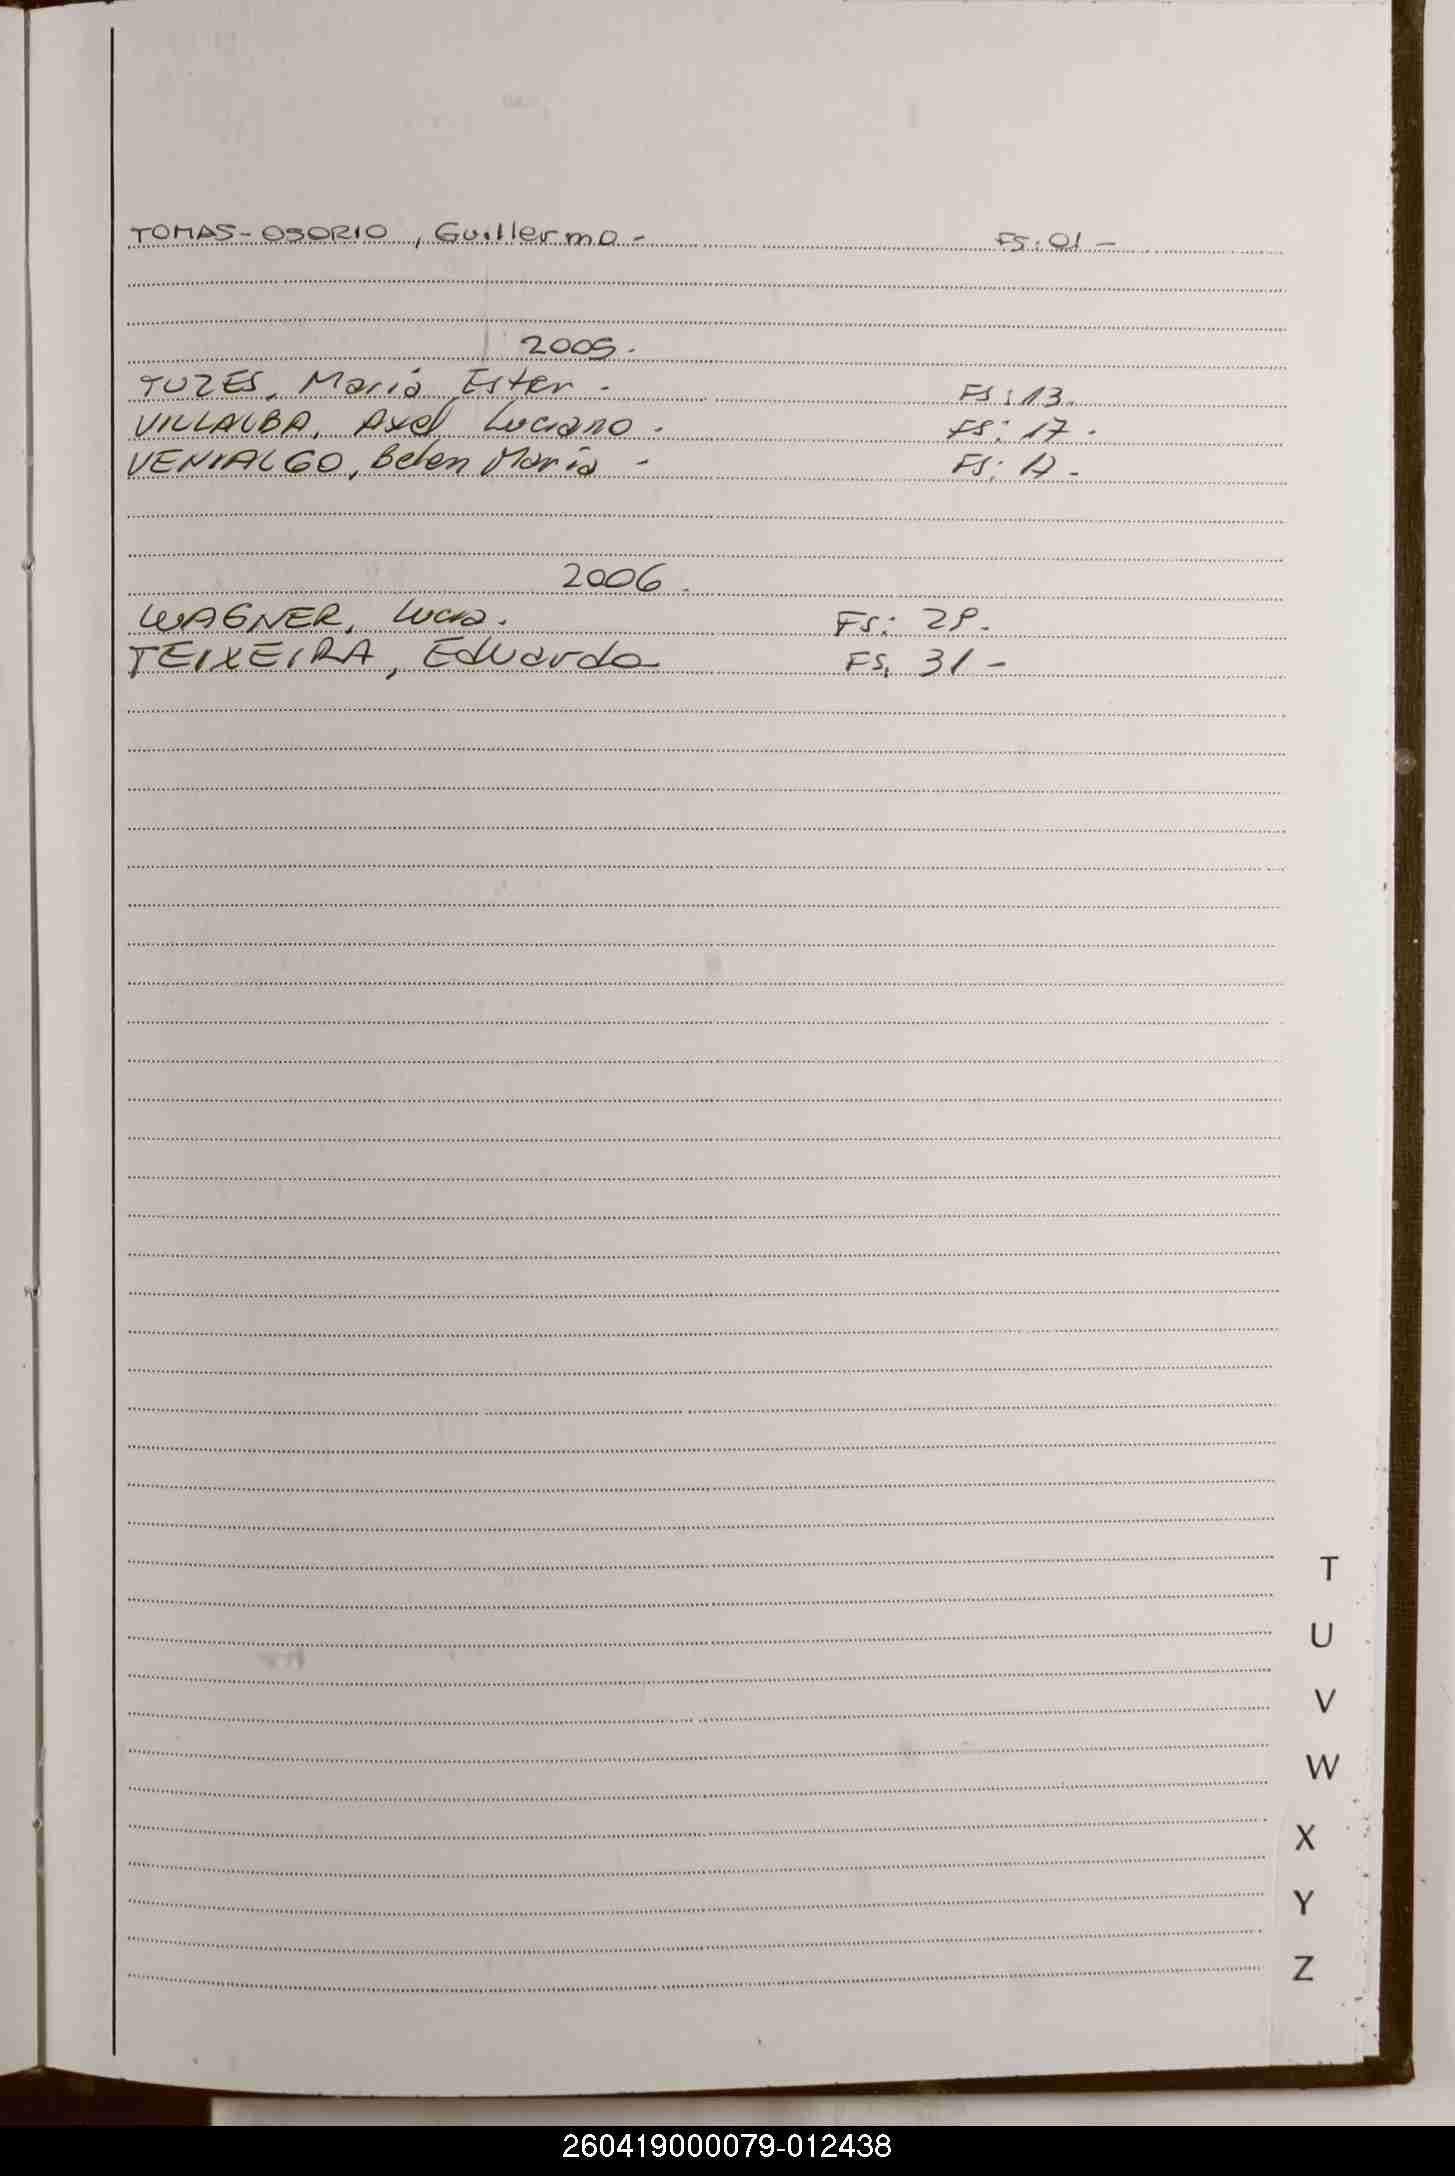 TOMAS-OSORIO, Guillermo - FS: 01 -
2005.
TUZES, María Ester. FS: 13.
VILLALBA, Axel Luciano. FS: 17.
VENIALGO, Belen María - FS: 17 -
2006.
WAGNER, Lucia. FS: 29.
TEIXEIRA, Eduardo FS. 31 -
T
U
V
W
X
Y
Z
260419000079-012438